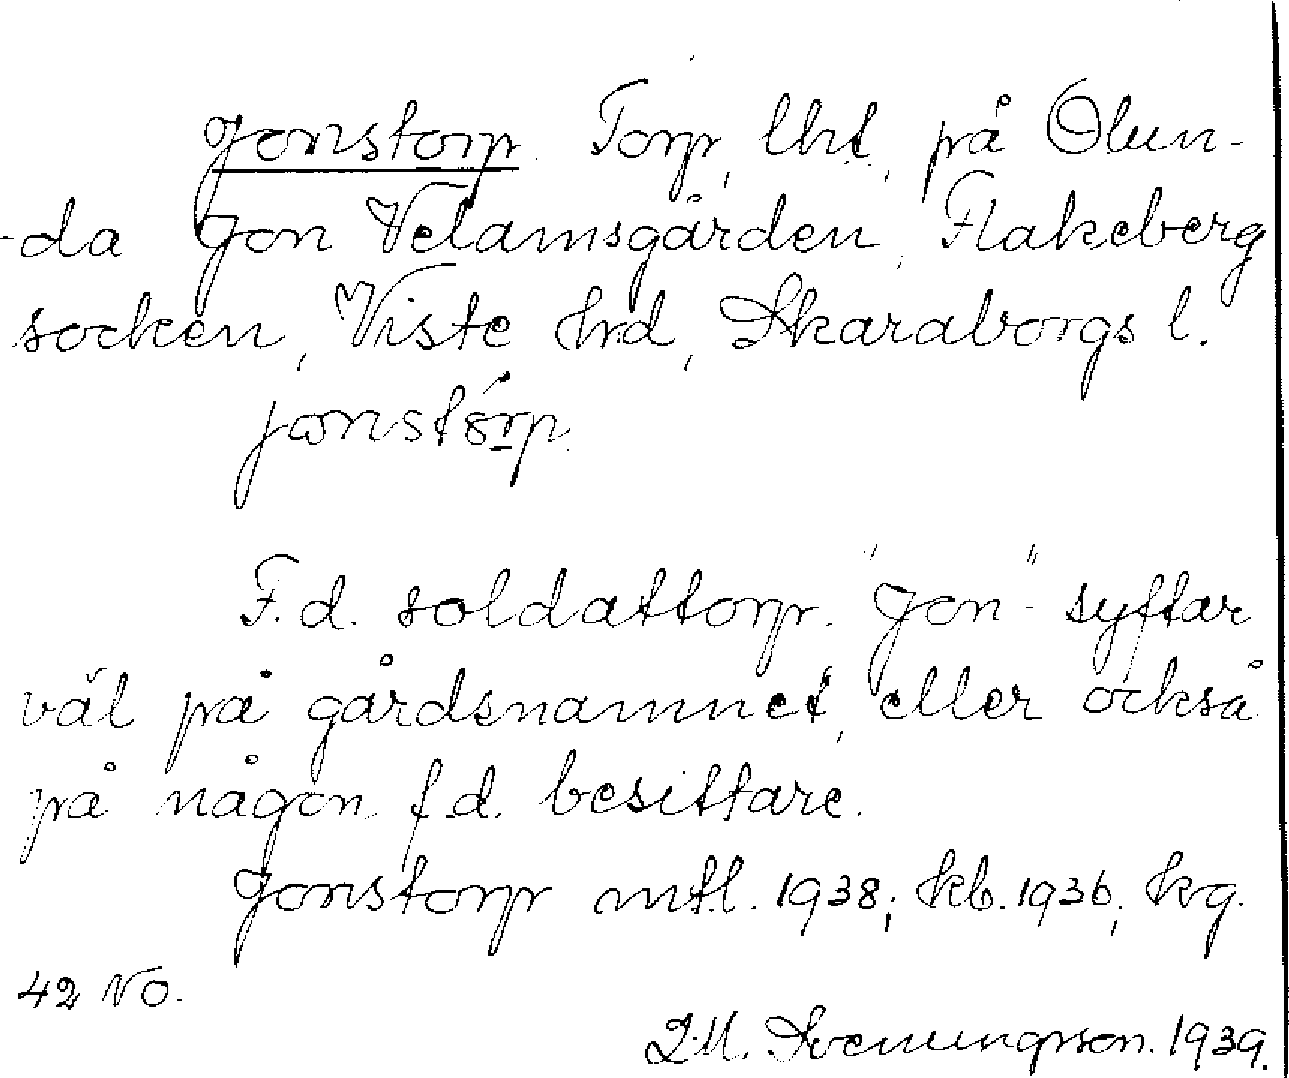 Jonstorp Torp, lht, på Ölun-
-da Jon Velamsgården, Flakeberg
socken, Viste hrd, Skaraborgs l.
jonstórp.
F.d. soldattorp. "Jon-" syftar
väl på gårdsnamnet, eller också
på någon f d. besittare.
Jonstorp mtl. 1938; kb. 1936, kg.
42 NO.
Svenungson. 1939.